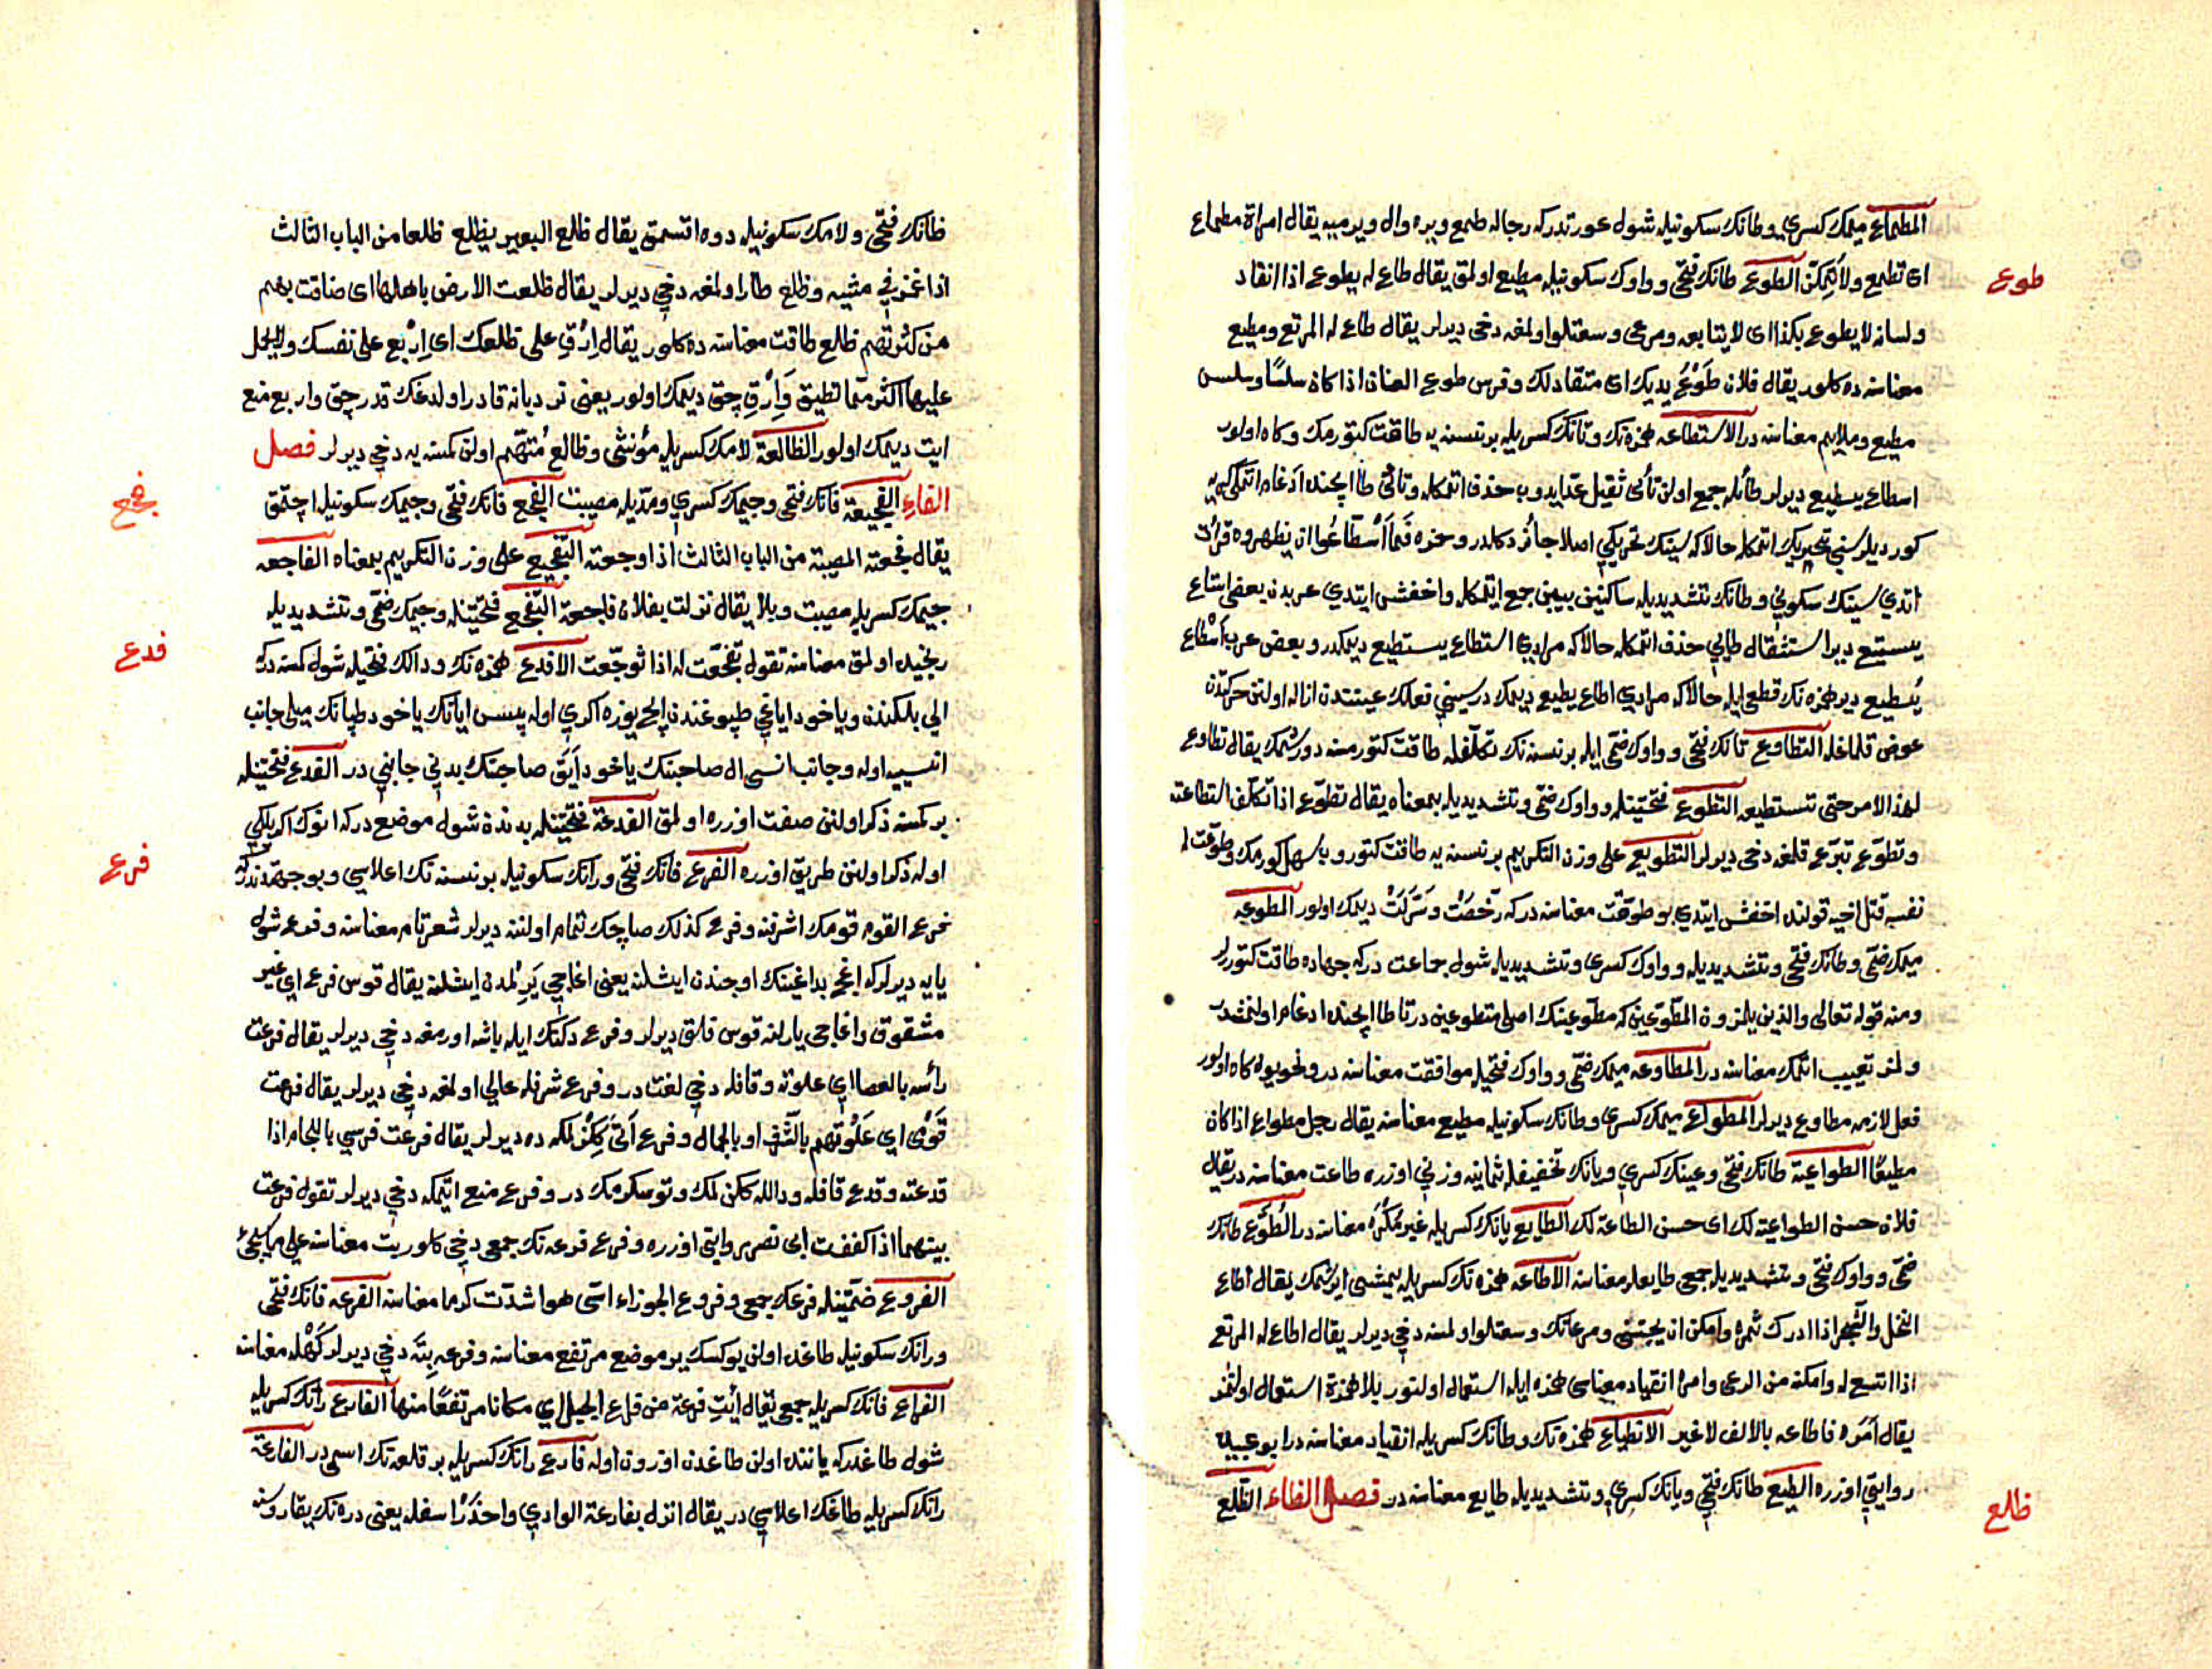 المطماع ميمك كسري وطانك سكونيله شول عورتدركه رجاله طمع ويره وال ويرميه يقال امراة مطماع
طوع
اى تطمع ولا تمكن الطوع طانك فتحى وواوك سكونيله مطيع اولمق يقال طاع له يطوع اذا انقاد
ولسانه لا يطوع بكذا اى لا يتابعه ومرعى وسعتلو اولمغه دخى ديرلر يقال طاع له المرتع ومطيع
معناسنه ده كلور يقال فلان طَوْعُ يديك اى منقاد لك وفرس طوع العنان اذا كان سلسًا وسلس
مطيع وملايم معناسنه در الاستطاعه همزه نك وتانك كسريله بر نسنه يه طاقت كتورمك وكاه اولور
اسطاع يسطيع ديرلر طائله جمع اولن تائى ثقيل عد ايدوب حذف اتمكله وتائى طا ايچنده ادغام اتمكى كريه
كورديلر سينى تحريك اتمكله حالا كه سينك تحريكى اصلا جائز دكلدر وحمزه فَمَا اسْطَّاعُوا ان يظهروه قرائت
اتدي سينك سكونى وطانك تشديديله ساكنين بينين جمع ايتمكله واخفش ايتدي عربدن بعضى استاع
يستيع دير استثقاله طايى حذف اتمكله حالا كه مرادي استطاع يستطيع ديمكدر وبعض عرب اَسْطاع
يُسطيع دير همزه نك قطعى ايله حالا كه مرادي اطاع يطيع ديمك در سينى فعلك عيننندن ازاله اولنن حركتدن
عوض قلمغله التطاوع تانك فتحى وواوك ضمى ايله بر نسنه نك تكلفله طاقت كتورمسنه دورشمك يقال تطاوع
لهذا الامر حتى تستطيعه التطوع فتحتينله وواوك ضمى وتشديديله بمعناه يقال تطوع اذا تكلف استطاعته
وتطوع تبرع قلمغه دخى ديرلر التطويع على وزن التكريم بر نسنه يه طاقت كتورو ب سهل كورمك وطوعت له
نفسه قتل اخيه قولنده اخفش ايتدي بو طوقت معناسنه دركه رخصت وسهلت ديمك اولور المطوعه
ميمك ضمى وطانك فتحى وتشديديله وواوك كسرى وتشديديله شول جماعت دركه جهاده طاقت كتورلر
ومنه قوله تعالى والذين يلمزون المطوعين كه مطوعينك اصلى متطوعين در تا طا ايچنده ادغام اولنمشدر
ولمز تعييب اتمك معناسنه در المطاوعه ميمك ضمى وواوك فتحيله موافقت معناسنه در ونحويون كاه اولور
فعل لازمه مطاوع ديرلر المطواع ميمك كسرى وطانك سكونيله مطيع معناسنه يقال رجل مطواع اذا كان
مطيعًا الطواعية طانك فتحى وعينك كسرى ويانك تخفيفله ثمانيه وزنى اوزره طاعت معناسنه در يقال
فلان حسن الطواعية لك اى حسن الطاعة لك الطايع يانك كسريله غير مُكْرَه معناسنه در الطُوّع طانك
ضمى وواوك فتحى وتشديديله جمعى طايعلر معناسنه الاطاعه همزه نك كسريله يمشى ايرشمك يقال اطاع
النخل والشجر اذا ادرك ثمره وامكن ان يجتنى ومرعانك وسعتلو اولمسنه دخى ديرلر يقال اطاع له المرتع
اذا اتسع له وامكنه من الرعى وامرا انقياد معناسى همزه ايله استعمال اولنور بلا همزة استعمال اولنمز
يقال امره فاطاعه بالالف لا غير الانطياع همزه نك وطانك كسريله انقياد معناسنه در ابو عبيد
روايتى اوزره الطيع طانك فتحى ويانك كسرى وتشديديله طايع معناسنه در فصل الظاء الظلع
ظلع
ظانك فتحى ولامك سكونيله دوه اقسمق يقال ظلع البعير يظلع ظلعا من الباب الثالث
اذا غمز في مشيه وظلع طار اولمغه دخى ديرلر يقال ظلعت الارض باهلها اى ضاقت بهم
من كثرتهم ظلع طاقت معناسنه ده كلور يقال اِرْقِ على ظلعك اى اِرْبع على نفسك ولا تحمل
عليها اكثر مما تطيق وَاِرْقِ چق ديمك اولور يعنى نردبانه قادر اولدغك قدر چق واربع منع
ايت ديمك اولور الظالعة لامك كسريله مؤنثى وظالع مُتَّهم اولن كمسنه يه دخى ديرلر فصل
الفاءِ الفجيعة فانك فتحى وجيمك كسري ومديله مصيبت الفجع فانك فتحى وجيمك سكونيله اچتمق
فجع
يقال فجعته المصيبة من الباب الثالث اذا اوجعته التفجيع على وزن التكريم بمعناه الفاجعه
جيمك كسريله مصيبت وبلا يقال نزلت بفلان فاجعة التفجع فتحتينله وجيمك ضمى وتشديديله
رنجيده اولمق معناسنه تقول تفجّعت له اذا توجّعت الافدع همزه نك ودالك فتحيله شول كمسنه دركه
فدع
الى بلكندن وياخود اياغى طپوغندن ايچ يوزه اكري اوله پيسس اياتك ياخود طپانك ميلى جانب
انسييه اوله وجانب انسى ال صاحبنك ياخود ايق صاحبنك بدنى جانبى در الفدع فتحتينله
بر كمسنه ذكر اولنن صفت اوزره اولمق الفدعة فتحتينله بدنده شول موضع دركه انوك اكريلكى
اوله ذكر اولنن طريق اوزره الفرع فانك فتحى ورانك سكونيله بر نسنه نك اعلاسى وبو جهتدندركه
فرع
فرع القوم قومك اشرفنه وفرع كذلك صاچك تمام اولننه ديرلر شعر تام معناسنه وفرع شول
يايه ديرلركه اغچ بداغينك اوجندن ايشلنه يعنى اغاجى يَرِلْمدن ايشلنه يقال قوس فرع اي غير
مشقوق واغاجى ياريلنه قوس فلق ديرلر وفرع دكنك ايله باشه اورمغه دخى ديرلر يقال فرعت
رأسه بالعصا اي علوته وقافله دخى لغت در وفرع شرفله عالى اولمغه دخى ديرلر يقال فرعت
قَوْمى اي عَلَوْتهم بالشرف او بالجمال وفرع اتى كِمْزلمكه ده ديرلر يقال فرعت فرسي باللجام اذا
قدعته وقدع قافله ودالله كمزلمك وتوسكرمك در وفرع منع اتمكه دخى ديرلر تقول فرعت
بينهما اذا كففت ابى نصر روايتى اوزره وفرع فرعه نك جمعى دخى كلور بت معناسنه على ما يجىء
الفروع ضمتينله فرعك جمعى وفروع الجوزاء اتسى هوا شدت كرما معناسنه الفرعه فانك فتحى
ورانك سكونيله طاغده اولن يوكسك ير موضع مرتفع معناسنه وفرعه بِتَه دخى ديرلر كَهْله معناسنه
الفراع فانك كسريله جمعى يقال أيتِ فرعة من فراع الجبل اي مكانا مرتفعًا منها الفارع رانك كسريله
شول طاغدركه ياننده اولن طاغدن اوزون اوله فارع رانك كسريله بر قلعه نك اسمى در الفارعة
رانك كسريله طاغك اعلاسى در يقال انزل بفارعة الوادي واحذَرْ اسفله يعنى دره نك يقاروسنه